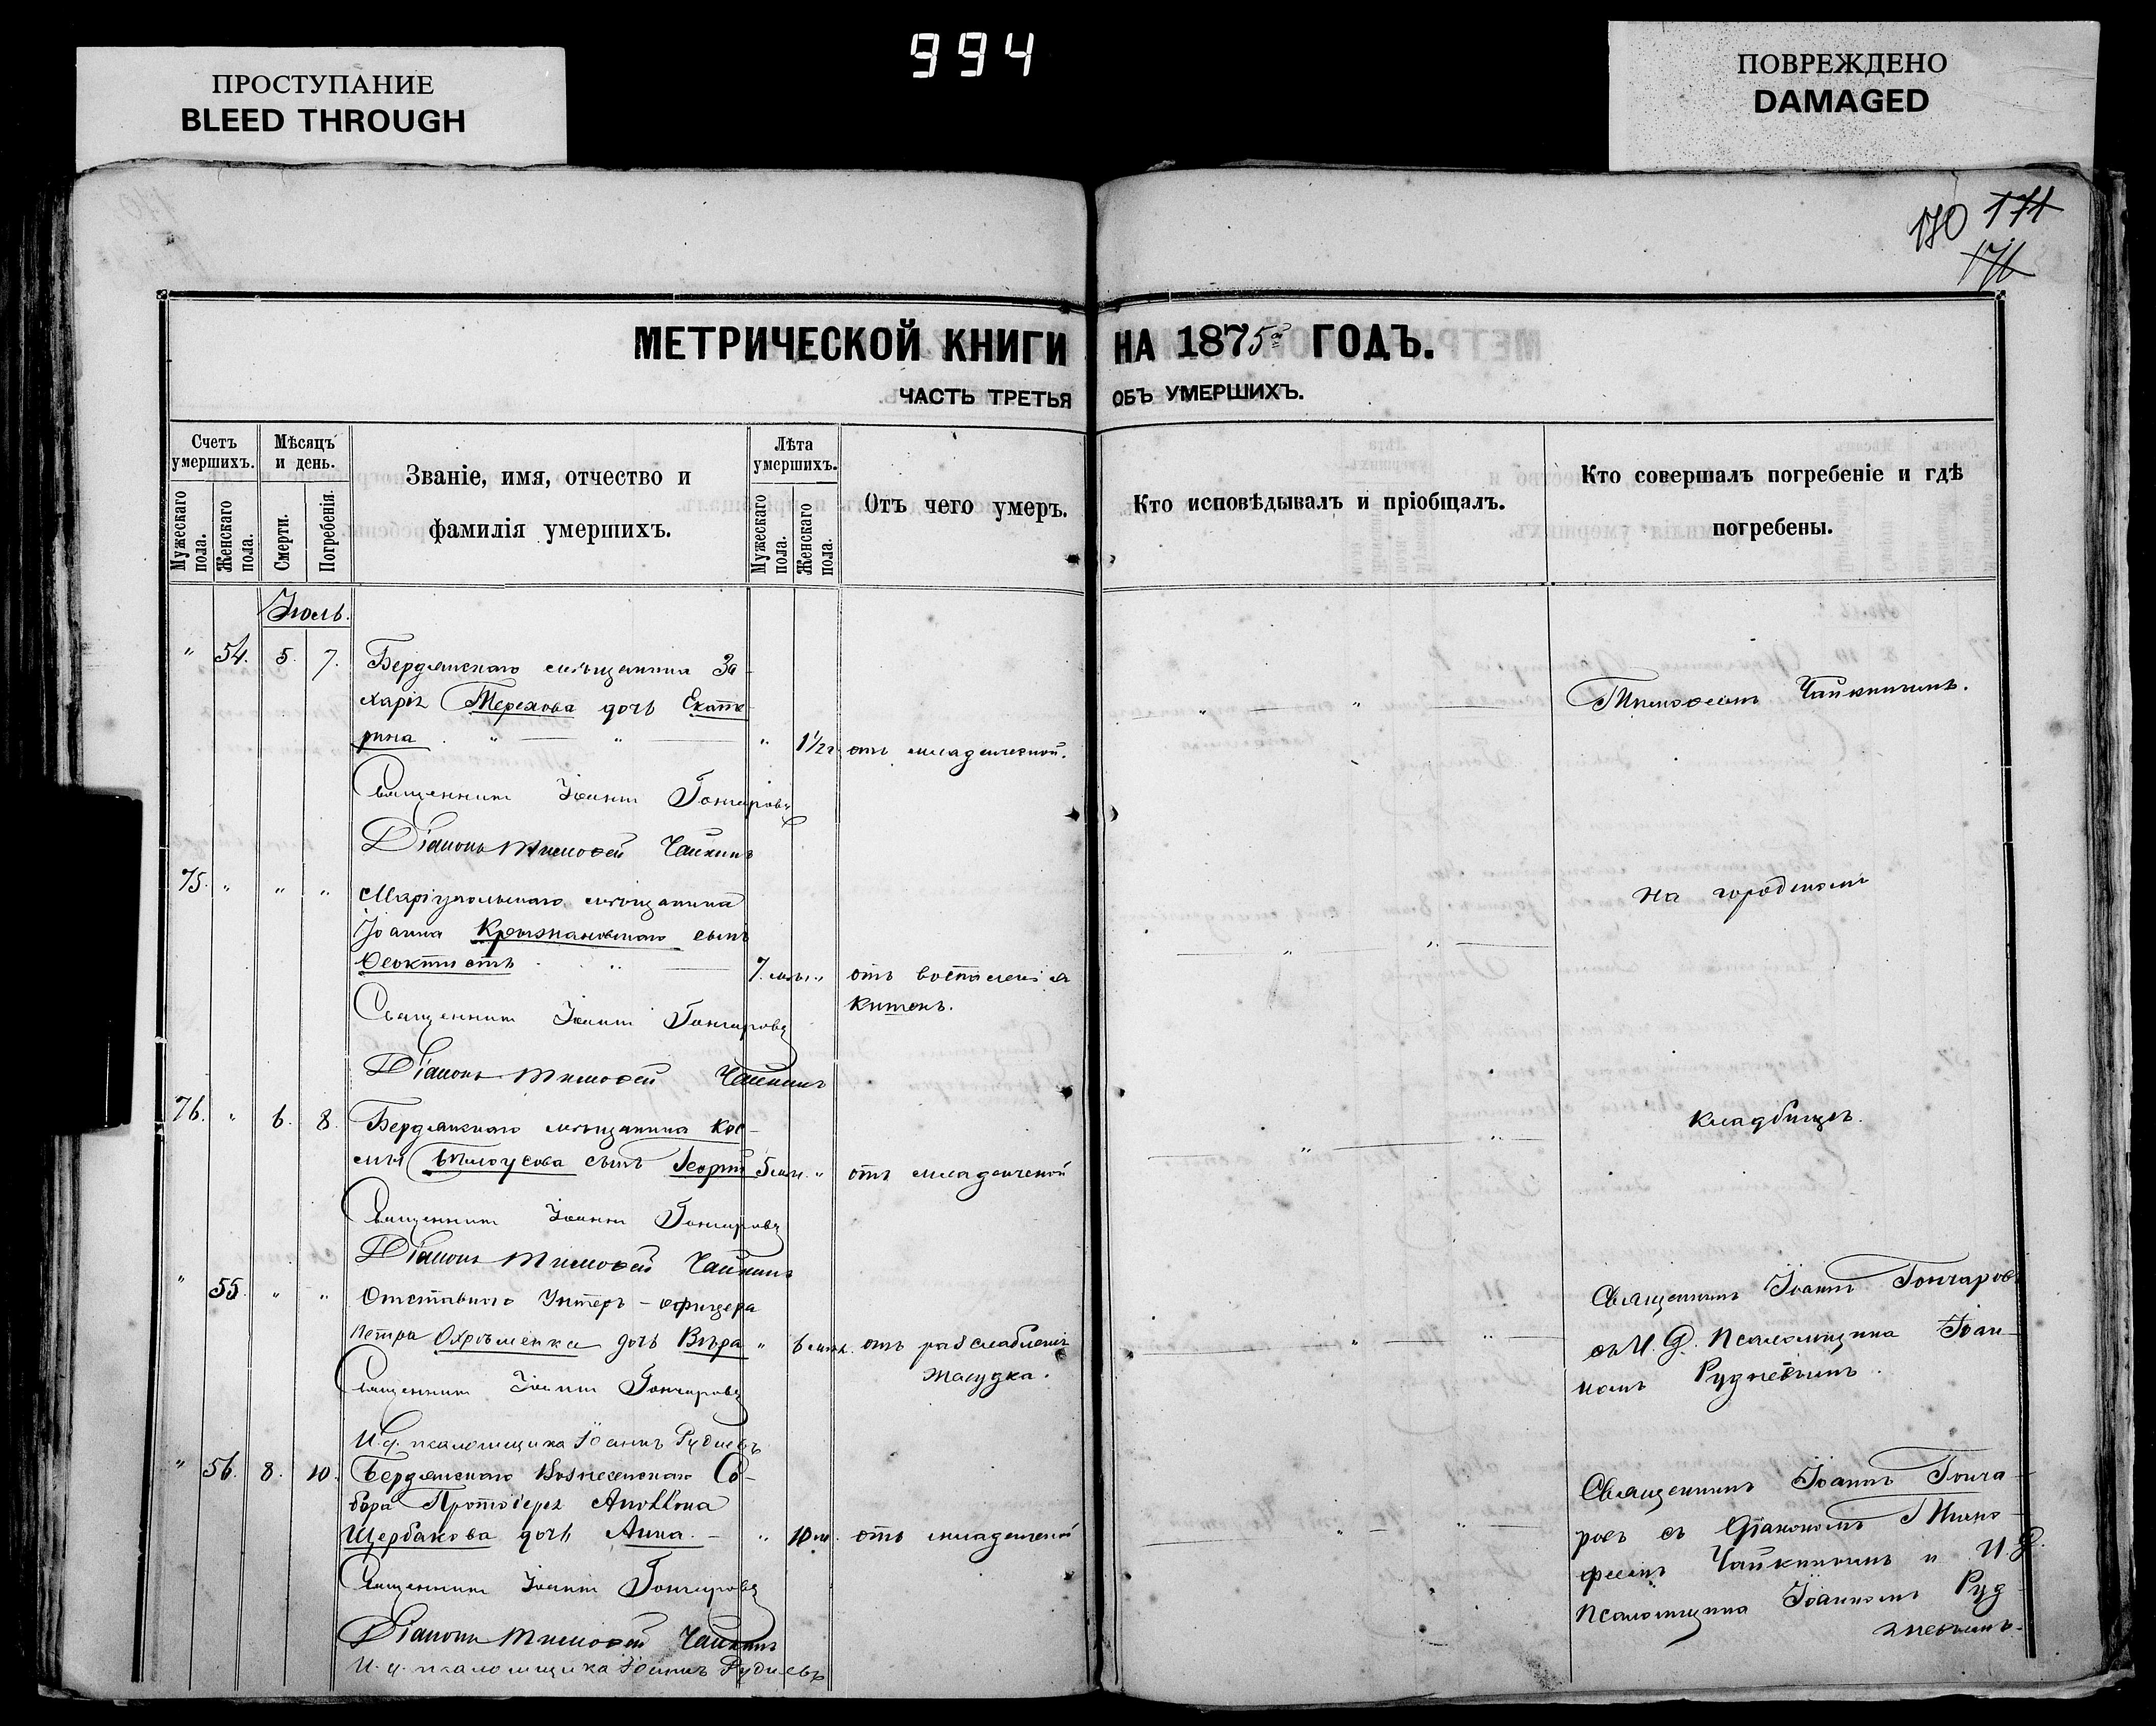 994
ПРОСТУПАНИЕ
BLEED THROUGH
ПОВРЕЖДЕНО
DAMAGED
170 171
171
МЕТРИЧЕСКОЙ КНИГИ НА 1875 ГОДЪ.
ЧАСТЬ ТРЕТЬЯ ОБЪ УМЕРШИХЪ.
Счетъ умершихъ.
Мужескаго пола.
Женскаго пола.
Мѣсяцъ и день.
Смерти.
Погребенія.
Званіе, имя, отчество и
фамилія умершихъ.
Лѣта умершихъ.
Мужескаго пола.
Женскаго пола.
Отъ чего умеръ.
Кто исповѣдывалъ и пріобщалъ.
Кто совершалъ погребеніе и гдѣ
погребены.
Іюль.
" 54. 5. 7. Бердянскаго мѣщанина За-
харія Терехова дочь Екате-
рина " " " 1 1/2 г. отъ младенческой.
Тимофеемъ Чайкинымъ.
Священникъ Іоаннъ Гончаровъ
Діаконъ Тимофей Чайкинъ
75. " " " Маріупольскаго мѣщанина
Іоанна Крыжановскаго сынъ
Ѳеоктистъ 7. мѣс. " отъ воспаленія
кишекъ.
на городскомъ
Священникъ Іоаннъ Гончаровъ
Діаконъ Тимофей Чайкинъ
76. " 6. 8. Бердянскаго мѣщанина Кос-
мы Бѣлоусова сынъ Георгій 5 мѣс. " отъ младенческой
кладбищѣ.
Священникъ Іоаннъ Гончаровъ
Діаконъ Тимофей Чайкинъ
" 55. " " Отставного Унтеръ-офицера
Петра Охрѣменка дочь Вѣра " 6 мѣс. отъ разслабленія
желудка.
Священникъ Іоаннъ Гончаровъ
съ И. Д. Псаломщика Іоан-
номъ Рудневымъ.
Священникъ Іоаннъ Гончаровъ
И. д. псаломщика Іоаннъ Рудневъ
" 56. 8. 10. Бердянскаго Вознесенскаго Со-
бора Протоіерея Аполлона
Щербакова дочь Анна. " 10 м. отъ младенческой
Священникъ Іоаннъ Гонча-
ровъ съ Діакономъ Тимо-
феемъ Чайкинымъ и И. Д.
Псаломщика Іоанномъ Руд-
невымъ.
Священникъ Іоаннъ Гончаровъ
Діаконъ Тимофей Чайкинъ
И. д. псаломщика Іоаннъ Рудневъ